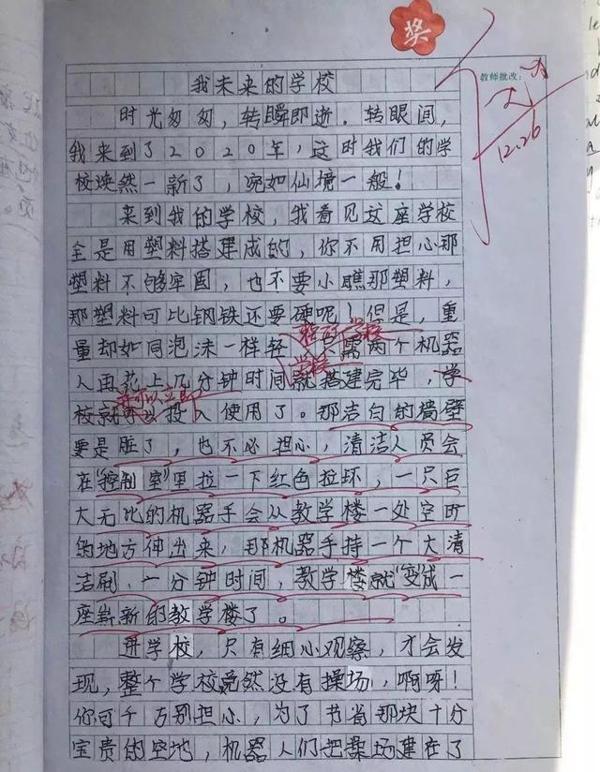 奖
教师批改:
12.26
我未来的学校
时光匆匆，转瞬即逝．转眼间，
我来到了2020年，这时我们的学
校焕然一新了，宛如仙境一般！
来到我的学校，我看见这座学校
全是用塑料搭建成的，你不用担心那
塑料不够牢固，也不要小瞧那塑料，
那塑料可比钢铁还要硬呢！但是，重
整所学校
量却如同泡沫一样轻，只需两个机器
学校
人再花上几分钟时间就搭建完毕，学
就可以立即
校就可以投入使用了。那洁白的墙壁
要是脏了，也不必担心，清洁人员会
在"控制室"里拉一下红色拉环，一只巨
大无比的机器手会从教学楼一处空旷
的地方伸出来，那机器手持一个大清
洁刷，一分钟时间，教学楼就"变"成一
座崭新的教学楼了。
进学校，只有细心观察，才会发
现，整个学校竟然没有操场，啊呀！
你可千万别担心，为了节省那块十分
宝贵的空地，机器人们把操场建在了